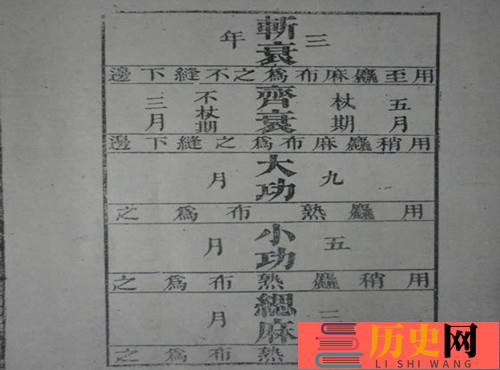 斬衰
三年
用至麤麻布為之不縫下邊
五月
杖期
齊衰
不杖期
三月
用稍麤麻布為之縫下邊
大功
九月
用麤熟布為之
小功
五月
用稍麤熟布為之
緦麻
月
熟布為之
历史网
LI SHI WANG